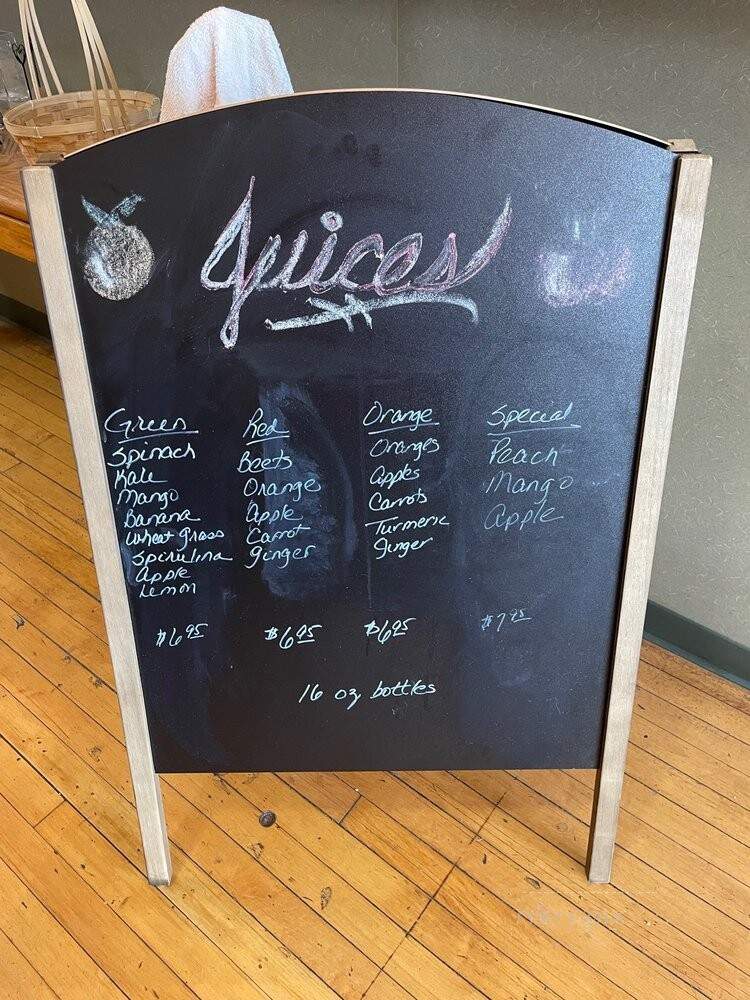 Juices
Green
Spinach
Kale
Mango
Banana
Wheat Grass
Spirulina
Apple
Lemon
$6.95
Red
Beets
Orange
Apple
Carrot
Ginger
$6.95
Orange
Oranges
Apples
Carrots
Turmeric
Ginger
$6.95
Special
Peach
Mango
Apple
$7.95
16 oz bottles